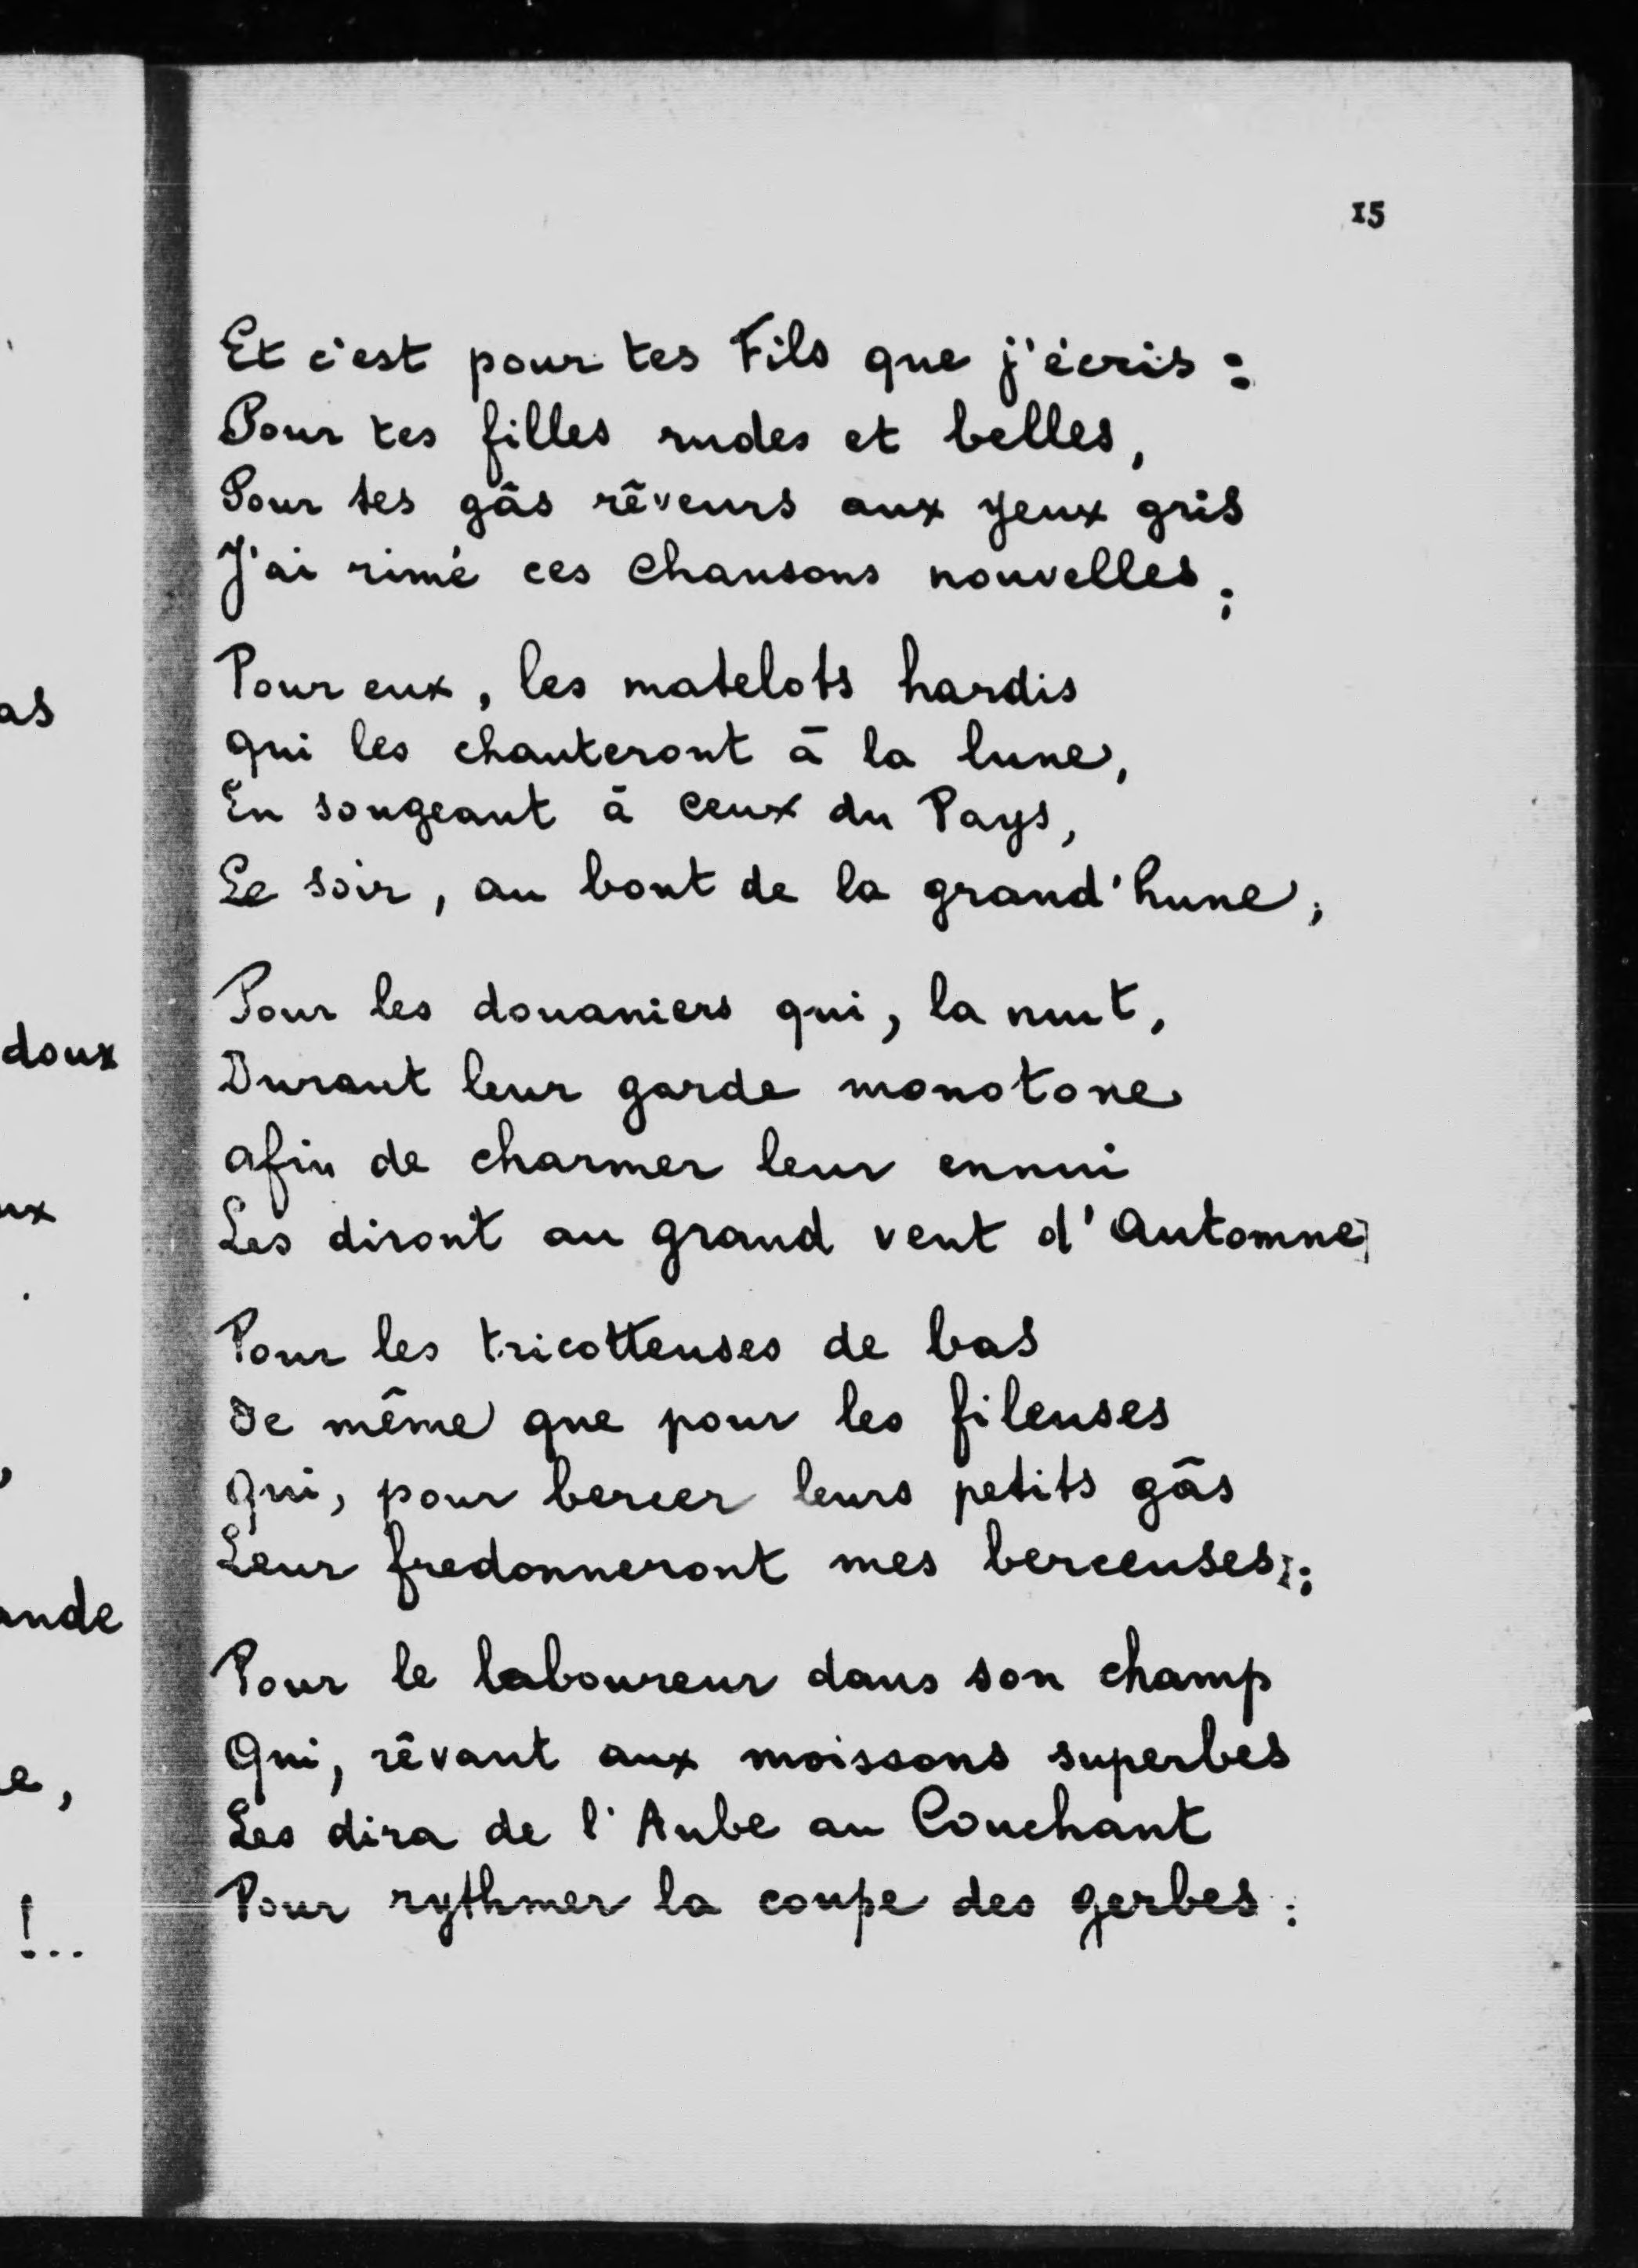 15
Et c'est pour tes Fils que j'écris :
Pour tes filles rudes et belles,
Pour tes gâs rêveurs aux yeux gris
J'ai rimé ces chansons nouvelles ;
Pour eux, les matelots hardis
qui les chanteront à la lune,
En songeant à ceux du Pays,
Le soir, au bout de la grand'hune ;
Pour les douaniers qui, la nuit,
Durant leur garde monotone
afin de charmer leur ennui
Les diront au grand vent d'Automne ;
Pour les tricotteuses de bas
De même que pour les fileuses
qui, pour bercer leurs petits gâs
Leur fredonneront mes berceuses ;
Pour le laboureur dans son champ
Qui, rêvant aux moissons superbes
Les dira de l'Aube au Couchant
Pour rythmer la coupe des gerbes :
as
doux
ux
.
,
ande
e,
!...